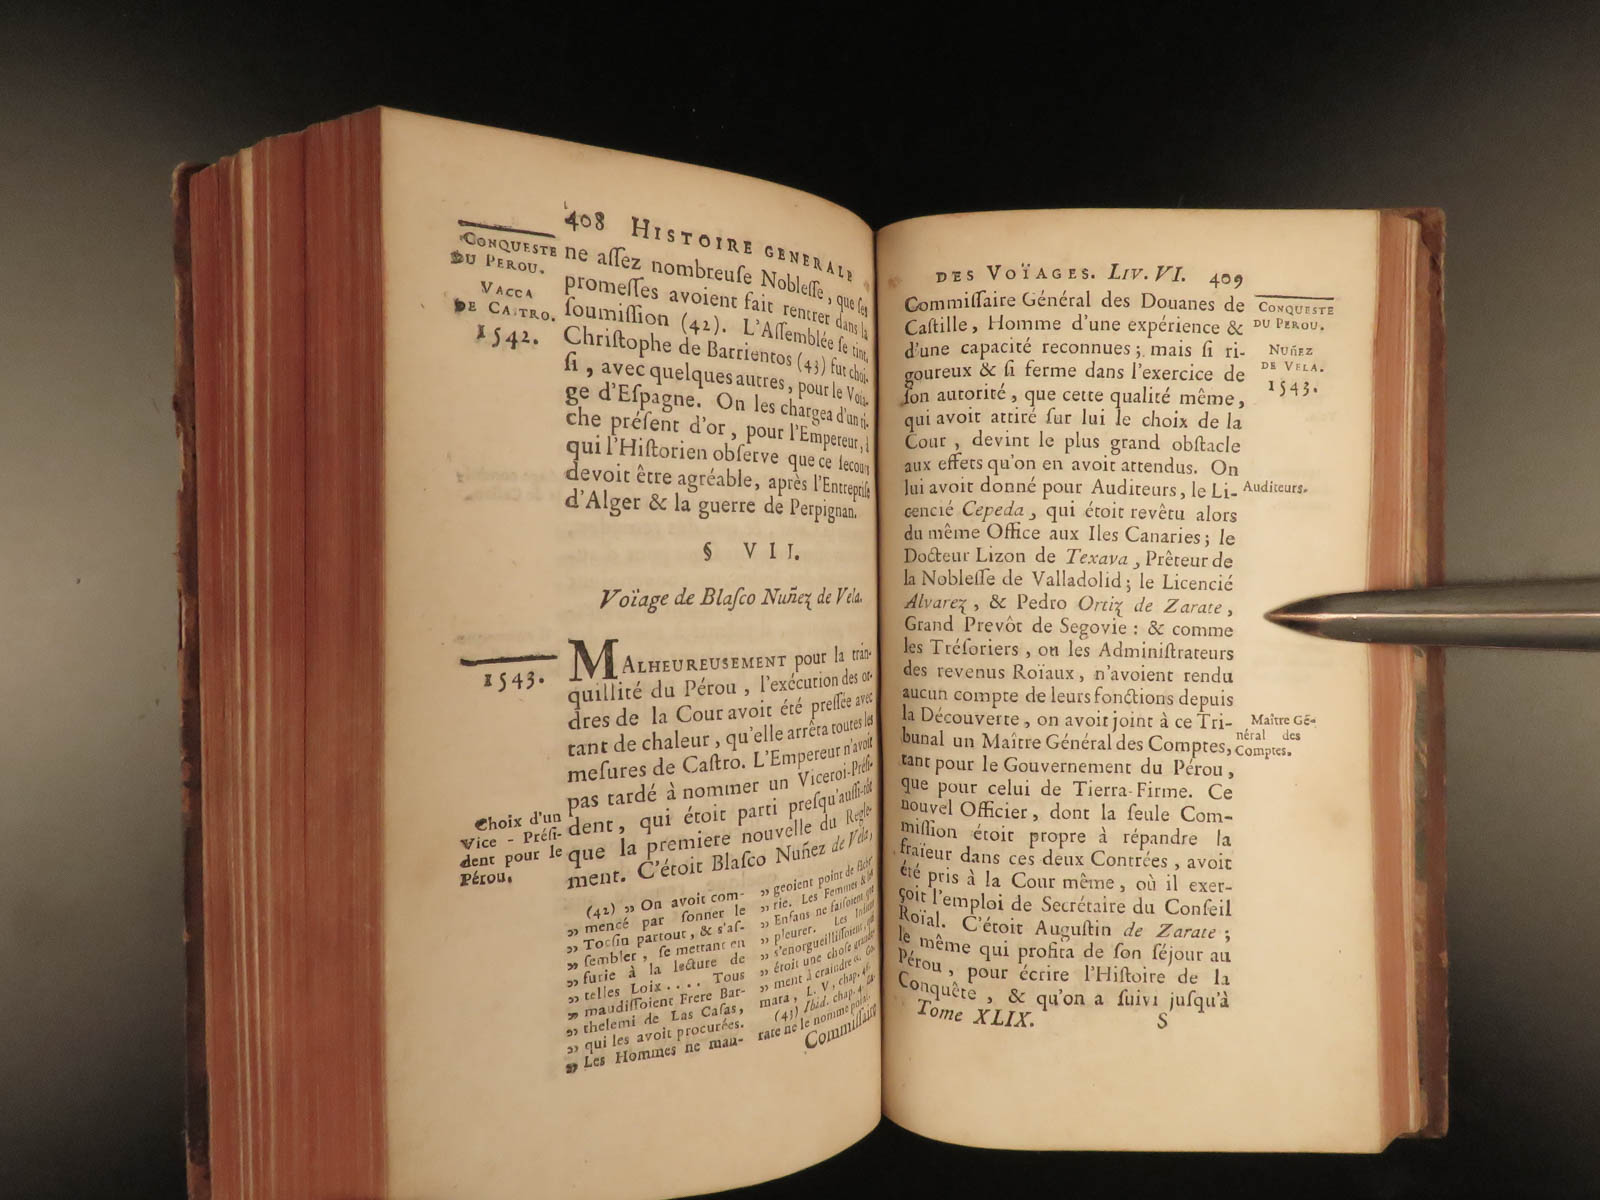 408 HISTOIRE GENERALE
CONQUESTE
DU PEROU.
VACCA
DE CASTRO.
1542.
ne aſſez nombreuſe Nobleſſe, que ſes
promeſſes avoient fait rentrer dans la
ſoumiſſion (42). L'Aſſemblée ſe tint,
Chriſtophe de Barrientos (43) fut choi-
ſi, avec quelques autres, pour le Voïa-
ge d'Eſpagne. On les chargea d'un ri-
che préſent d'or, pour l'Empereur, à
qui l'Hiſtorien obſerve que ce ſecours
devoit être agréable, après l'Entrepriſe
d'Alger & la guerre de Perpignan.
§ VII.
Voïage de Blaſco Nuñez de Vela.
1543.
MALHEUREUSEMENT pour la tran-
quillité du Pérou, l'exécution des or-
dres de la Cour avoit été preſſée avec
tant de chaleur, qu'elle arrêta toutes les
meſures de Caſtro. L'Empereur n'avoit
pas tardé à nommer un Viceroi-Préſi-
dent, qui étoit parti preſqu'auſſi-tôt
que la premiere nouvelle du Regle-
ment. C'étoit Blaſco Nuñez de Vela,
Choix d'un
Vice-Préſi-
dent pour le
Pérou.
(42) „ On avoit com-
„ mencé par ſonner le
„ Tocſin partout, & s'aſ-
„ ſembler, ſe mettant en
„ furie à la lecture de
„ telles Loix.... Tous
„ maudiſſoient Frere Bar-
„ thelemi de Las Caſas,
„ qui les avoit procurées.
„ Les Hommes ne man-
„ geoient point de fâche-
„ rie. Les Femmes & les
„ Enfans ne faiſoient que
„ pleurer. Les Indiens
„ s'enorgueilliſſoient, qui
„ étoit une choſe grande-
„ ment à craindre «. Go-
mara, L. V, chap. 4.
(43) Ibid. chap. 4. Za-
rate ne le nomme point.
Commiſſaire
DES VOÏAGES. LIV. VI. 409
Commiſſaire Général des Douanes de
Caſtille, Homme d'une expérience &
d'une capacité reconnues; mais ſi ri-
goureux & ſi ferme dans l'exercice de
ſon autorité, que cette qualité même,
qui avoit attiré ſur lui le choix de la
Cour, devint le plus grand obſtacle
aux effets qu'on en avoit attendus. On
lui avoit donné pour Auditeurs, le Li-
cencié Cepeda, qui étoit revêtu alors
du même Office aux Iles Canaries; le
Docteur Lizon de Texava, Prêteur de
la Nobleſſe de Valladolid; le Licencié
Alvarez, & Pedro Ortiz de Zarate,
Grand Prevôt de Segovie: & comme
les Tréſoriers, ou les Adminiſtrateurs
des revenus Roïaux, n'avoient rendu
aucun compte de leurs fonctions depuis
la Découverte, on avoit joint à ce Tri-
bunal un Maître Général des Comptes,
tant pour le Gouvernement du Pérou,
que pour celui de Tierra-Firme. Ce
nouvel Officier, dont la ſeule Com-
miſſion étoit propre à répandre la
fraïeur dans ces deux Contrées, avoit
été pris à la Cour même, où il exer-
çoit l'emploi de Secrétaire du Conſeil
Roïal. C'étoit Auguſtin de Zarate;
le même qui profita de ſon ſéjour au
Pérou, pour écrire l'Hiſtoire de la
Conquête, & qu'on a ſuivi juſqu'à
Tome XLIX. S
CONQUESTE
DU PEROU.
NUñEZ
DE VELA.
1543.
Auditeurs.
Maître Gé-
néral des
Comptes.